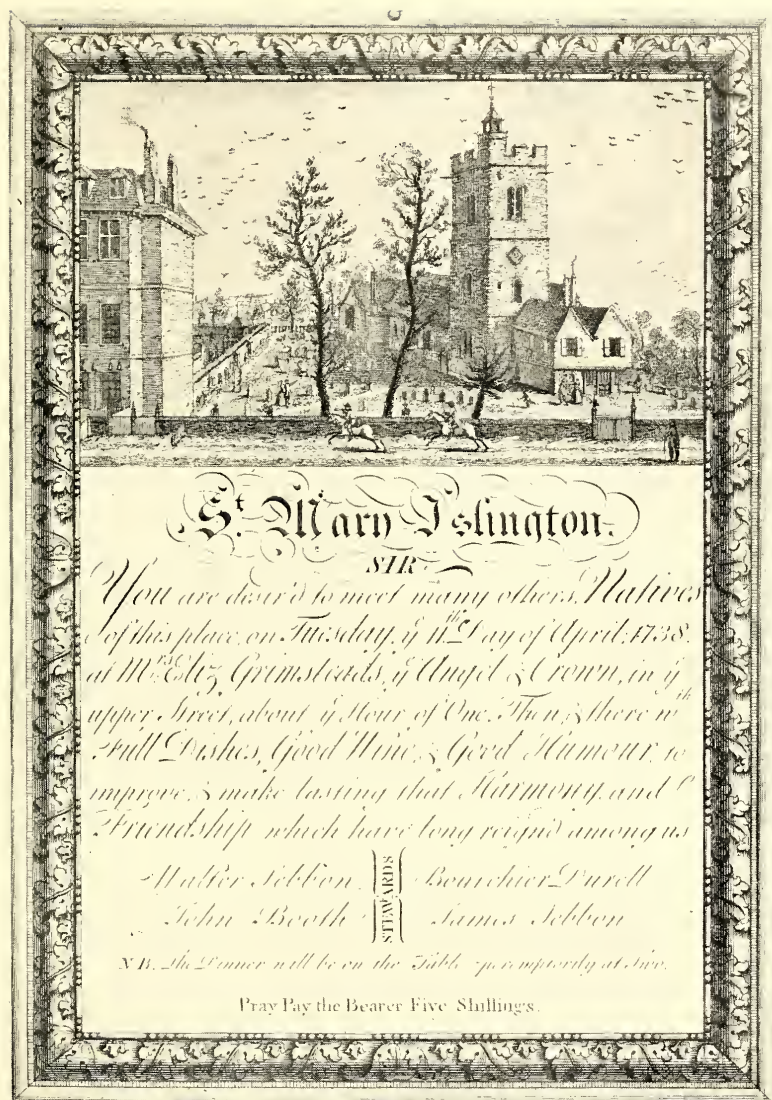 St. Mary Islington.
SIR
You are desir'd to meet many others, Natives
of this place, on Tuesday, ye 11th Day of April, 1738.
at Mrs Eliz Grimsteads, ye Angel & Crown, in ye
upper Street, about ye Hour of One. Then, & there wth
Full Dishes, Good Wine, & Good Humour, to
improve, & make lasting that Harmony, and
Friendship which have long reign'd among us
Walter Sebbon Bourchier Durell
STEWARDS
John Booth James Sebbon
N.B. The Dinner will be on the Table peremptorily at Two.
Pray Pay the Bearer Five Shillings.